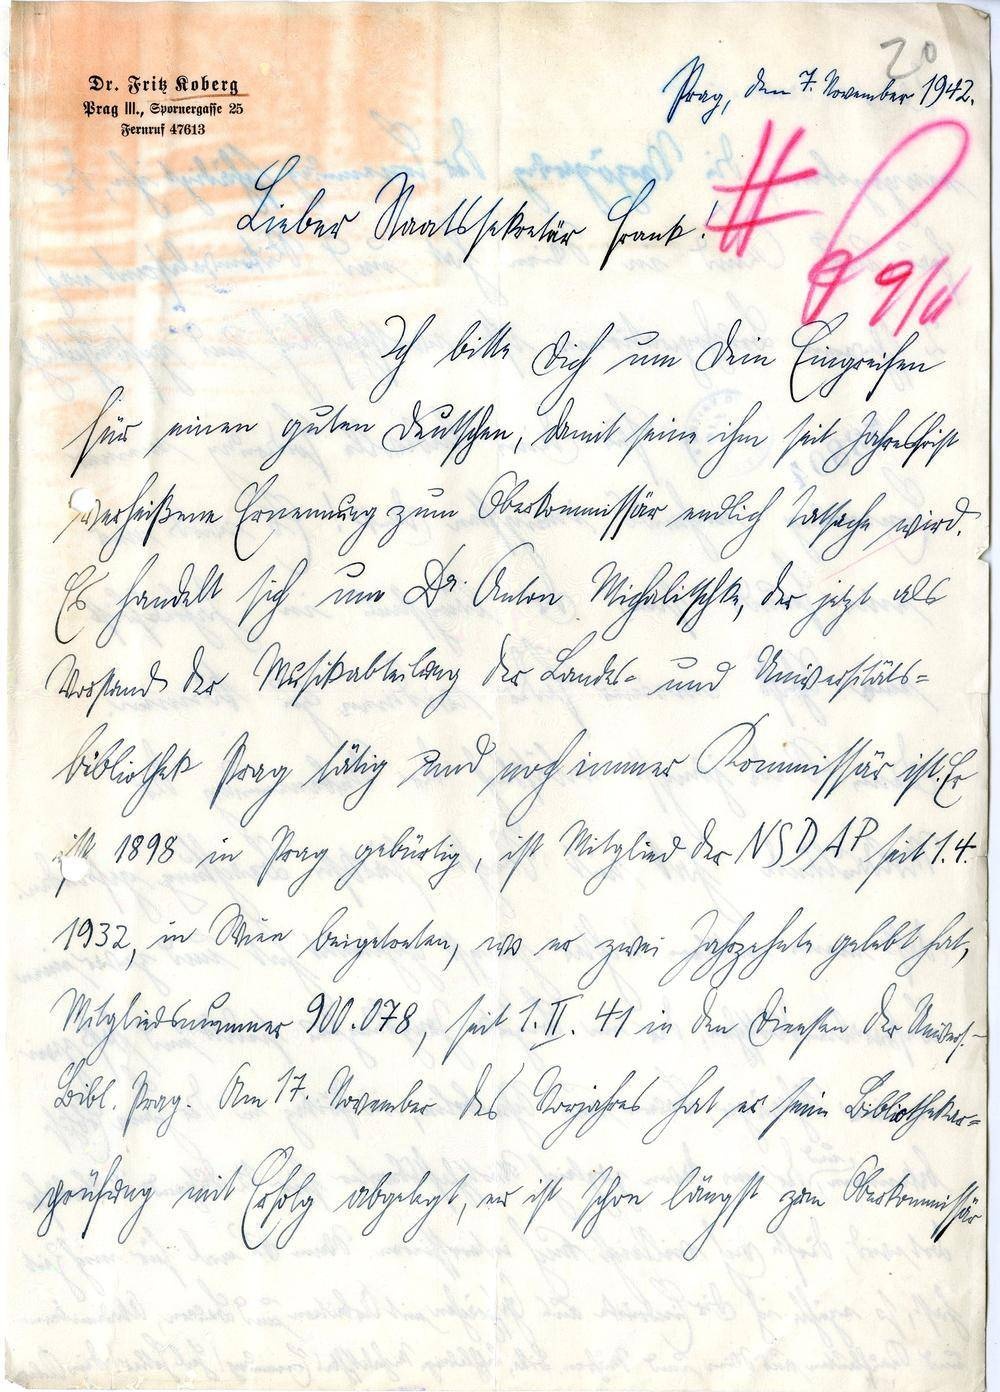 20
Dr. Fritz Koberg
Prag III., Spornergasse 25
Fernruf 47613
Prag, den 7. November 1942.
Lieber Staatssekretär Frank!
9/11
Ich bitte Dich um Dein Eingreifen
für einen guten Deutschen, damit seine ihm seit Jahresfrist
verheißene Ernennung zum Oberkommissär endlich Tatsache wird.
Es handelt sich um Dr. Anton Michalitschke, der jetzt als
Vorstand der Musikabteilung der Landes- und Universitäts=
bibliothek Prag tätig und noch immer Kommissär ist. Er
ist 1898 in Prag gebürtig, ist Mitglied der NSDAP seit 1.4.
1932, in Wien beigetreten, wo er zwei Jahrzehnte gelebt hat,
Mitgliedsnummer 900.078, seit 1.II.41 in den Diensten der Univers.-
Bibl. Prag. Am 17. November des Vorjahres hat er seine Bibliothekar=
prüfung mit Erfolg abgelegt, er ist schon längst zum Oberkommissär